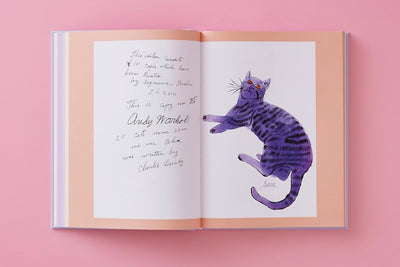 This edition consists
of 190 copies which have
been Printed
by Seymour Berlin
This is copy no
Andy Warhol
25 cats name sam
and one Blue
was written by
Charles Lisanby
Sam